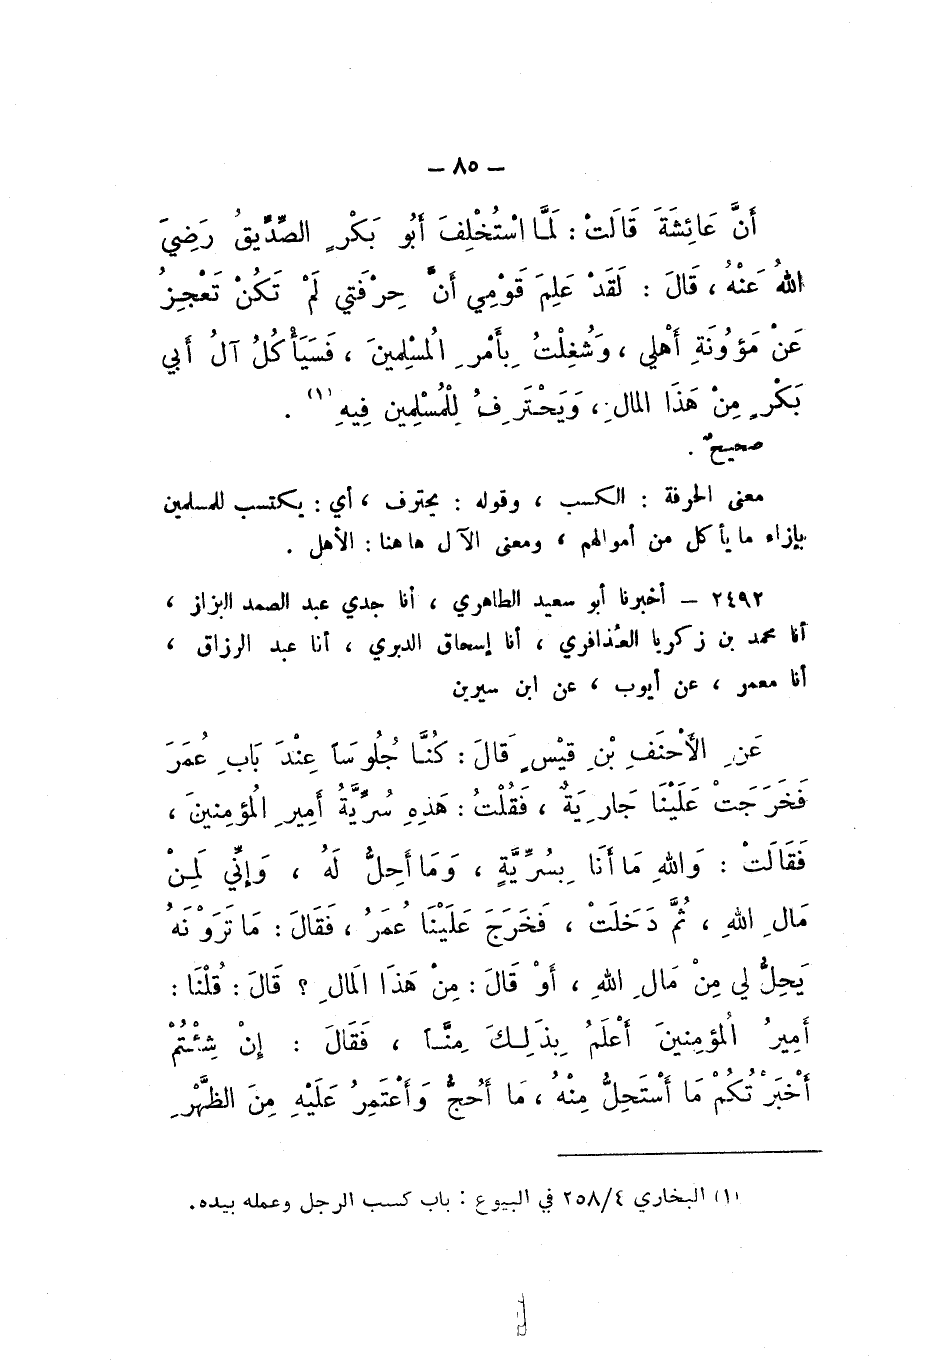 — ٨٥ —
أَنَّ عَائِشَةَ قَالَتْ : لَمَّا اسْتُخْلِفَ أَبُو بَكْرٍ الصِّدِّيقُ رَضِيَ
اللهُ عَنْهُ ، قَالَ : لَقَدْ عَلِمَ قَوْمِي أَنَّ حِرْفَتِي لَمْ تَكُنْ تَعْجِزُ
عَنْ مَؤُونَةِ أَهْلِي ، وَشُغِلْتُ بِأَمْرِ الْمُسْلِمِينَ ، فَسَيَأْكُلُ آلُ أَبِي
بَكْرٍ مِنْ هَذَا المَالِ ، وَيَحْتَرِفُ لِلْمُسْلِمِينَ فِيهِ (١) .
صحيحٌ .
معنى الحرفة : الكسب ، وقوله : يحترف ، أي : يكتسب للمسلمين
بإزاء ما يأكل من أموالهم ، ومعنى الآل هاهنا : الأهل .
٢٤٩٢ — أخبرنا أبو سعيد الطاهري ، أنا جدي عبد الصمد البزاز ،
أنا محمد بن زكريا العُذافري ، أنا إسحاق الدبري ، أنا عبد الرزاق ،
أنا معمر ، عن أيوب ، عن ابن سيرين
عَنِ الأَحْنَفِ بْنِ قَيْسٍ قَالَ : كُنَّا جُلُوسَاً عِنْدَ بَابِ عُمَرَ
فَخَرَجَتْ عَلَيْنَا جَارِيَةٌ ، فَقُلْتُ : هَذِهِ سُرِّيَّةُ أَمِيرِ الْمُؤمِنينَ ،
فَقَالَتْ : وَاللهِ مَا أَنَا بِسُرِّيَّةٍ ، وَمَا أَحِلُّ لَهُ ، وَإِنِّي لَمِنْ
مَالِ اللهِ ، ثُمَّ دَخَلَتْ ، فَخَرَجَ عَلَيْنَا عُمَرُ ، فَقَالَ : مَا تَرَوْنَهُ
يَحِلُّ لِي مِنْ مَالِ اللهِ ، أَوْ قَالَ : مِنْ هَذَا المَالِ ؟ قَالَ : قُلْنَا :
أَمِيرُ الْمُؤمِنينَ أَعْلَمُ بِذَلِكَ مِنَّا ، فَقَالَ : إِنْ شِئْتُمْ
أَخْبَرْتُكُمْ مَا أَسْتَحِلُّ مِنْهُ ، مَا أَحُجُّ وَأَعْتَمِرُ عَلَيْهِ مِنَ الظَّهْرِ
(١) البخاري ٢٥٨/٤ في البيوع : باب كسب الرجل وعمله بيده .